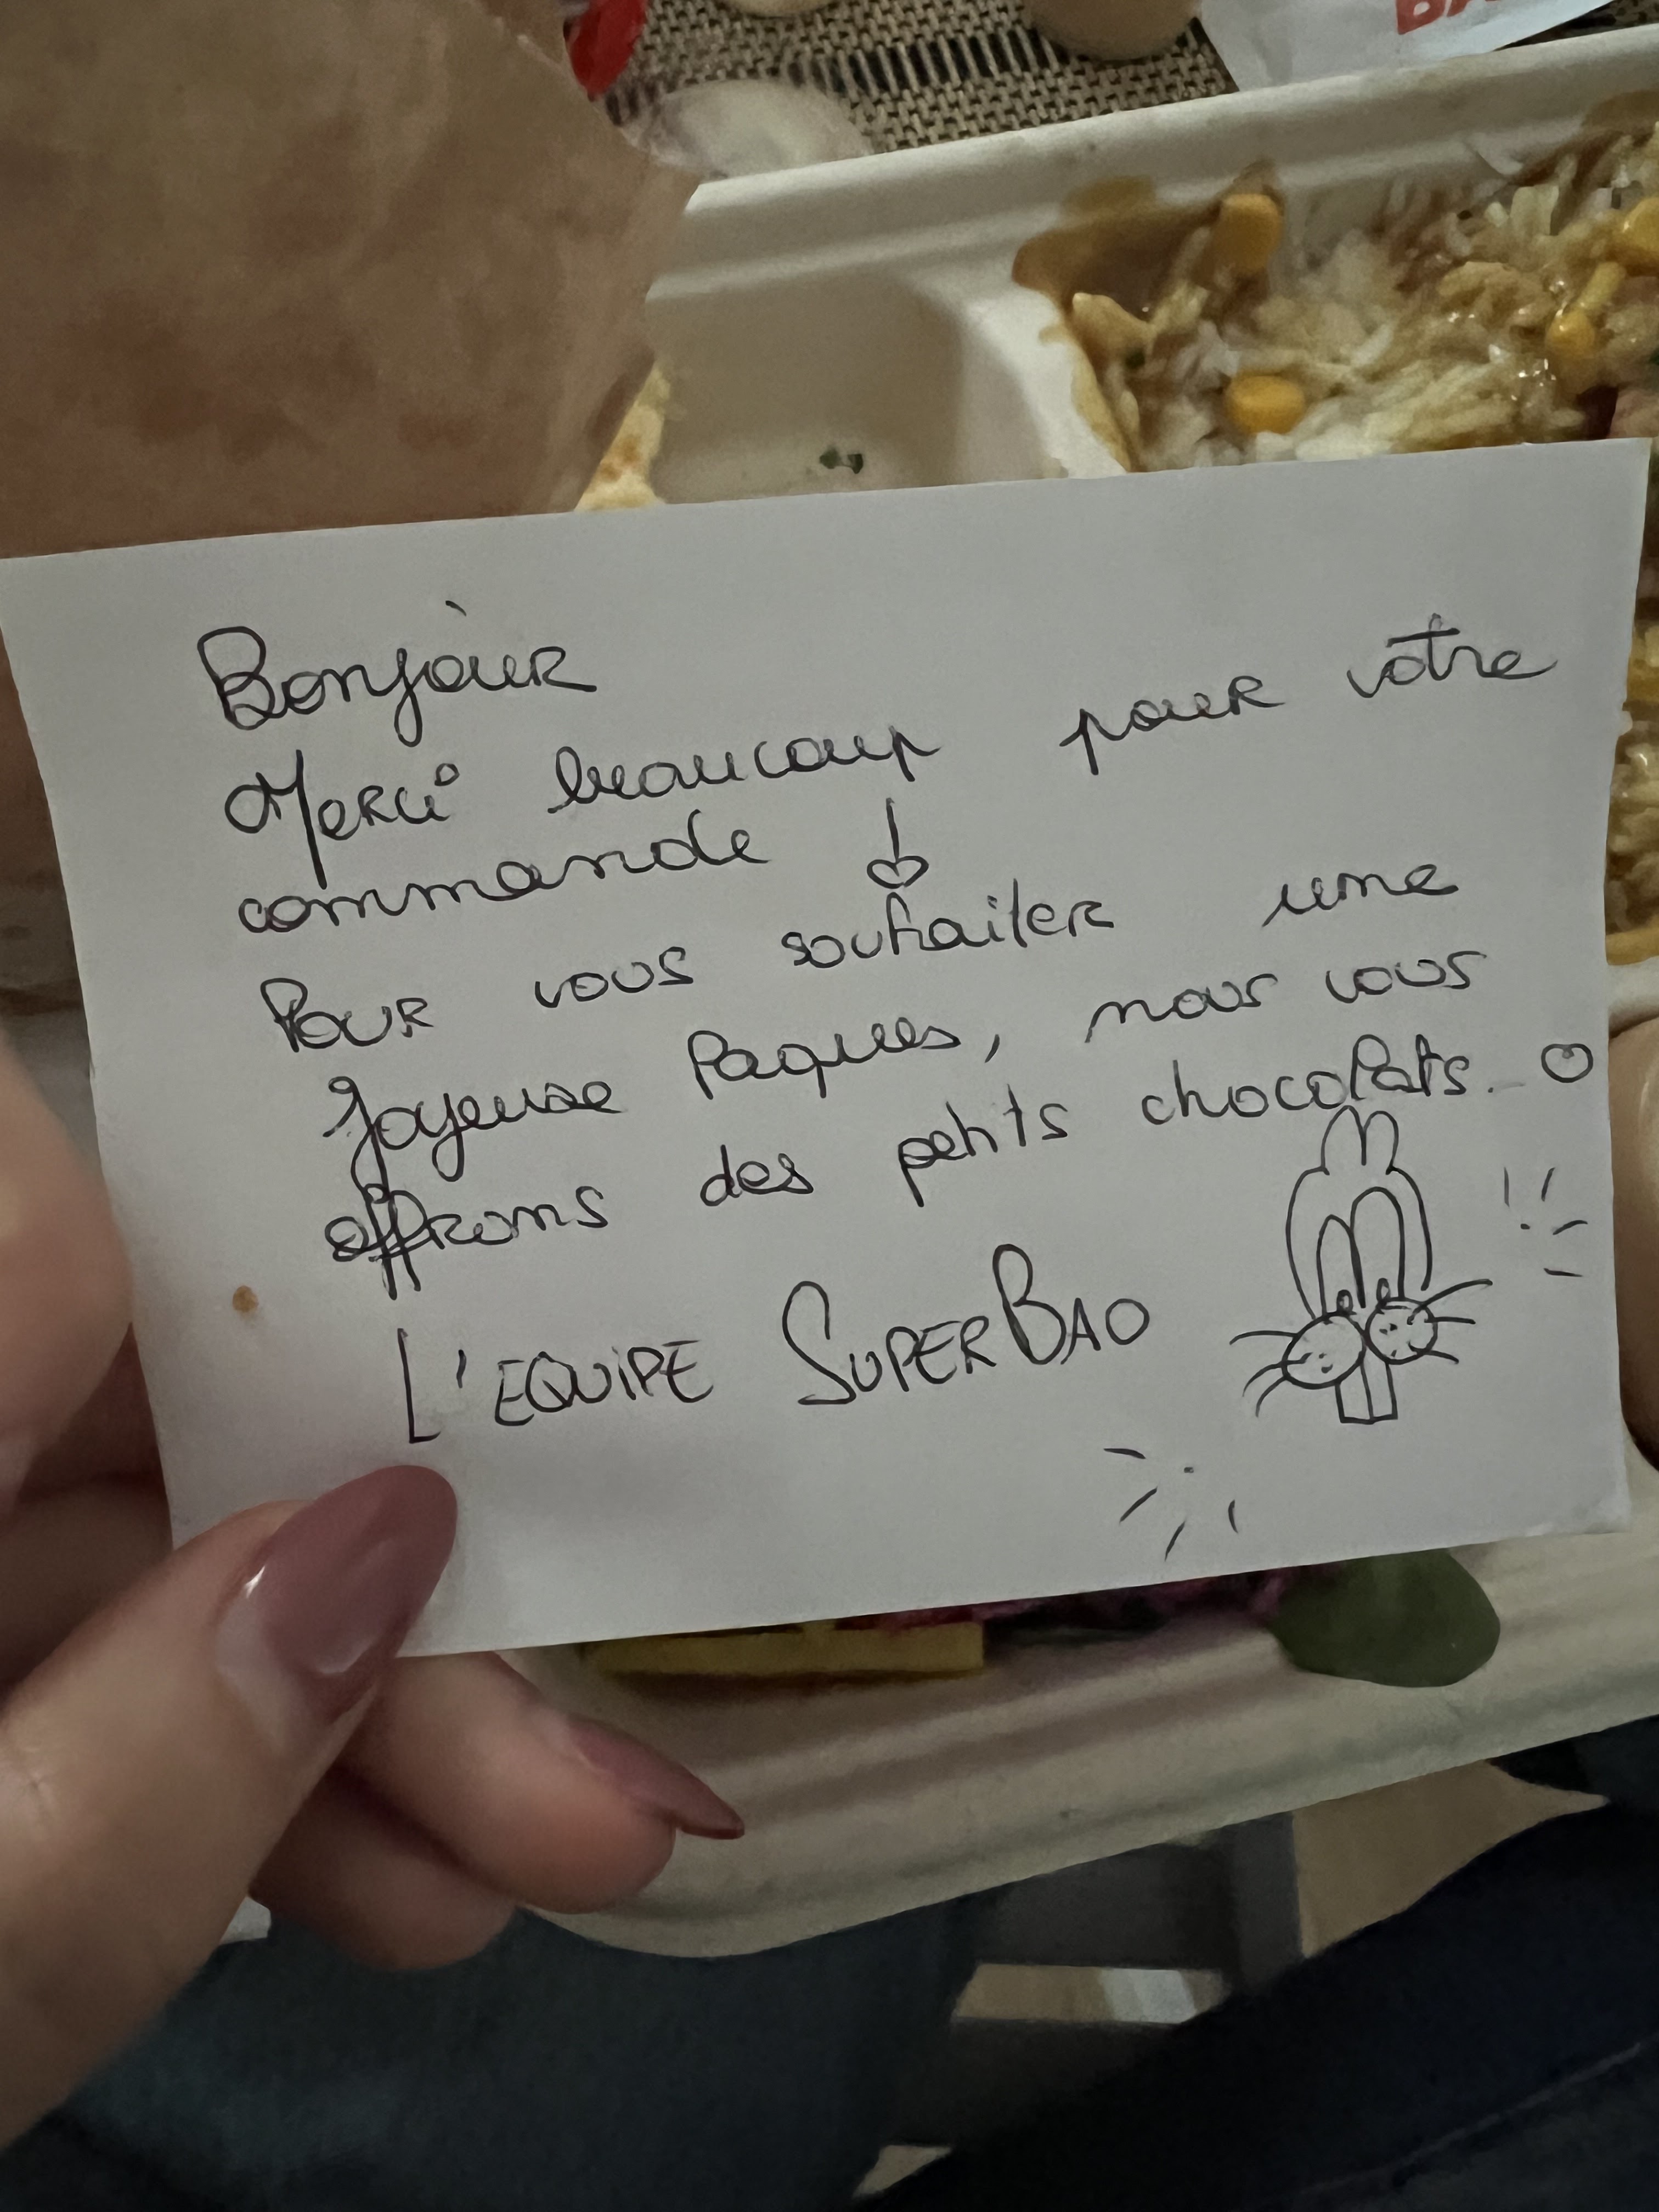 BA
Bonjour
Merci beaucoup pour votre
commande !
Pour vous souhaiter une
Joyeuse Paques, nous vous
offrons des petits chocolats.
L'EQUIPE SUPERBAO